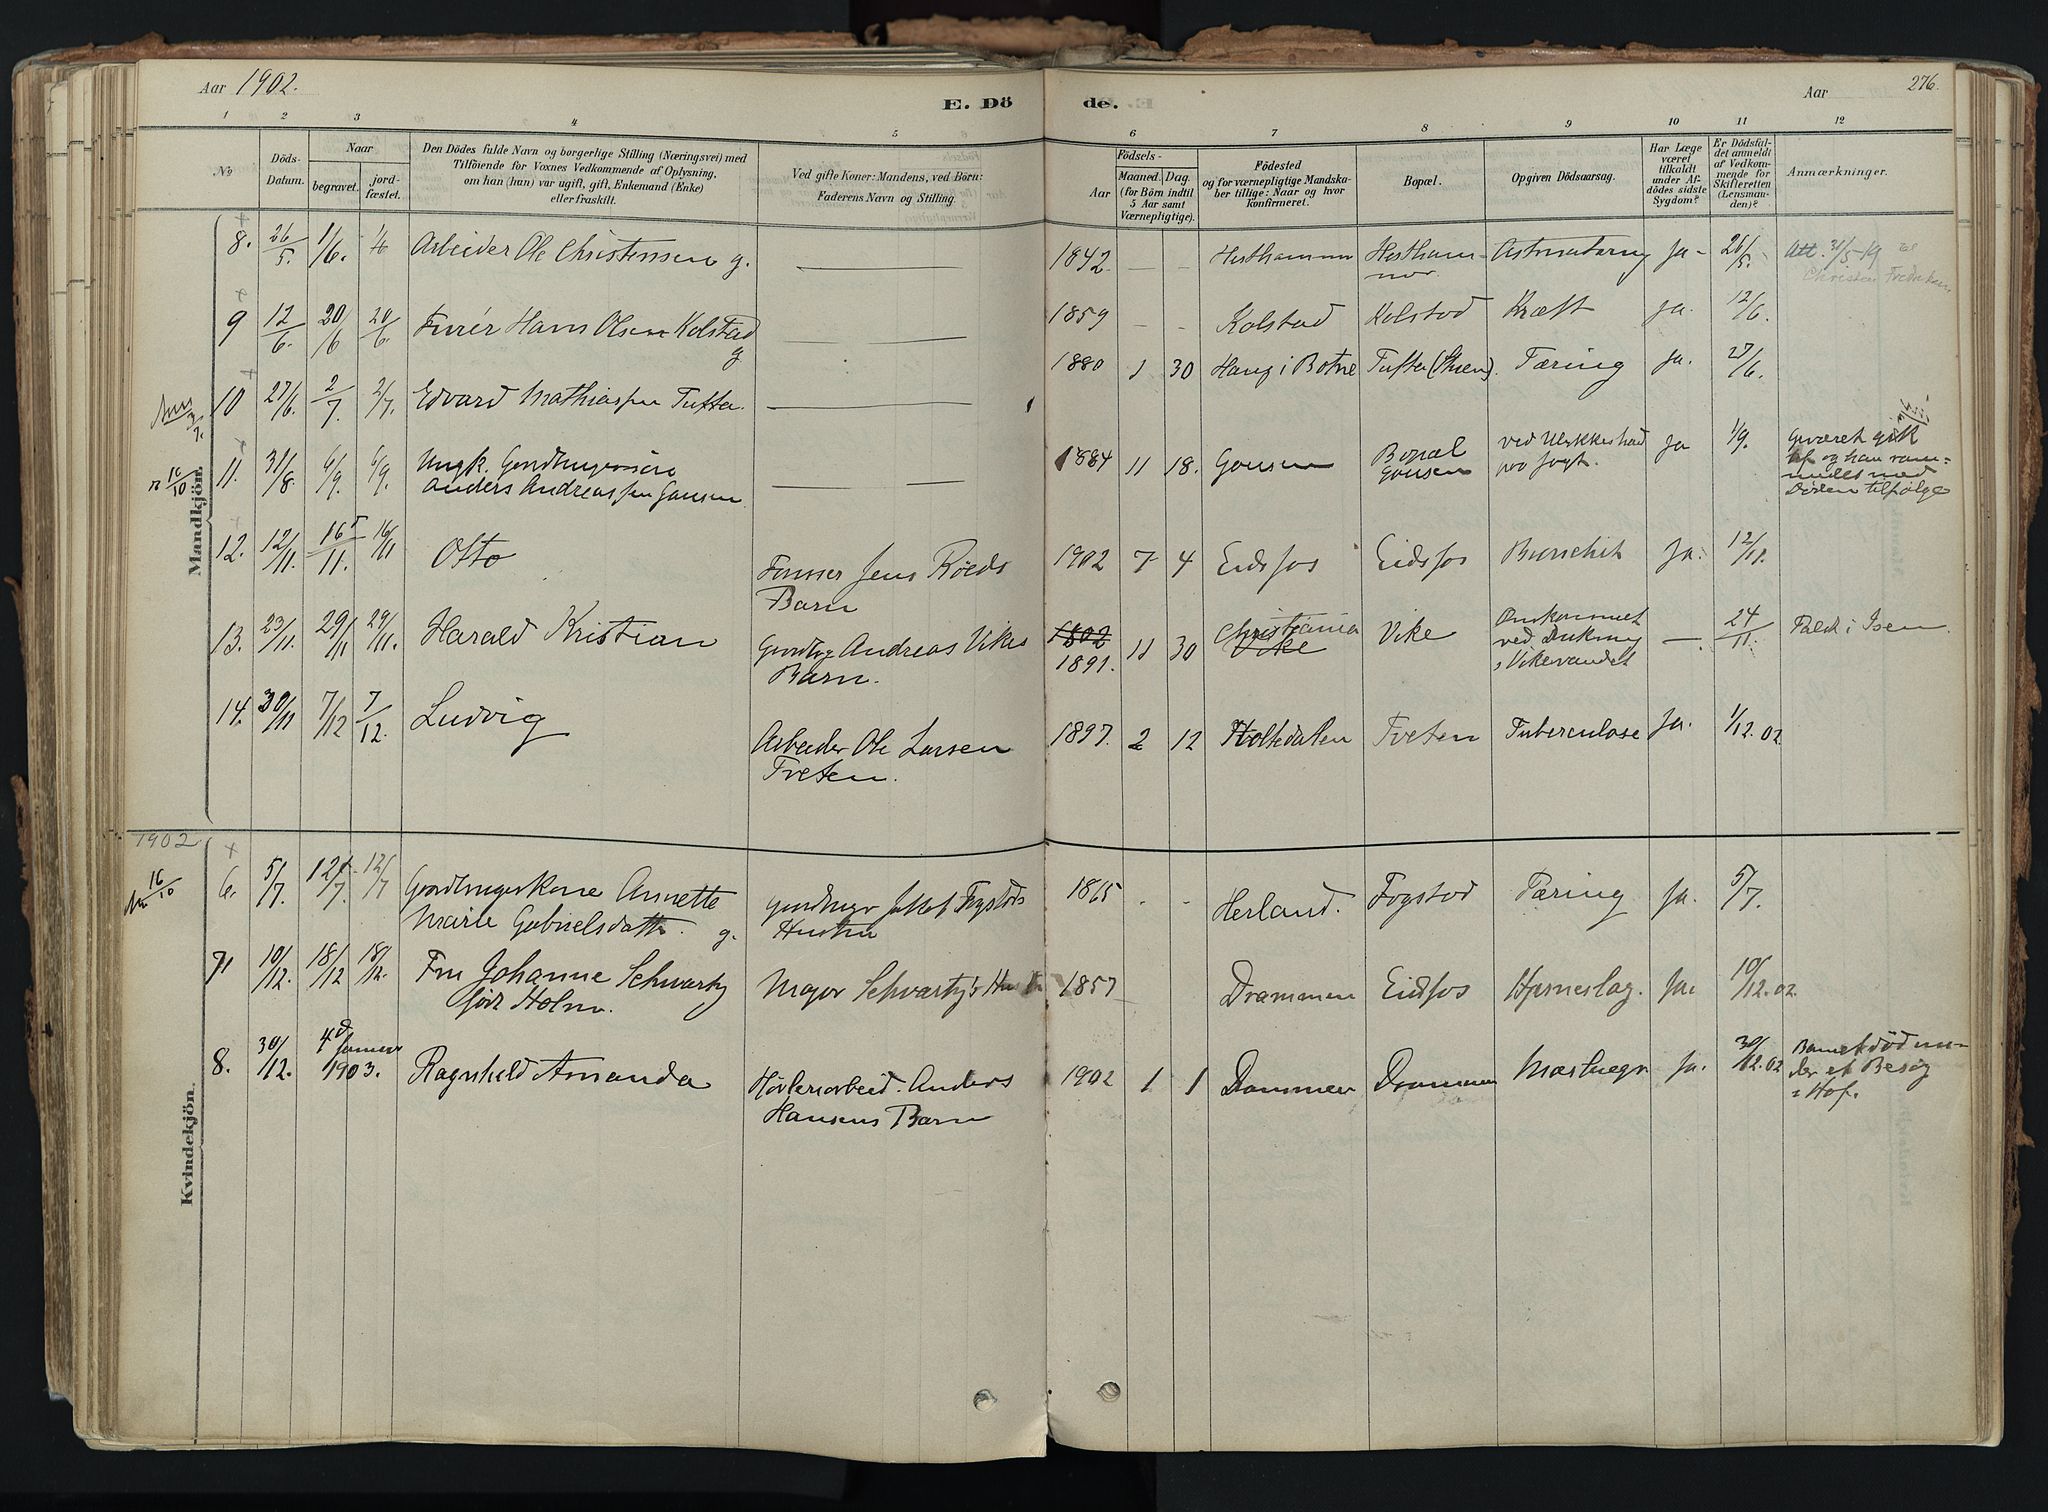 Aar 1902.
E. Dö
de.
Aar
276.
1 2 3 4 5
6 7 8 9 10 11 12
No
Döds-
Datum.
Naar
begravet.
jord-
fæstet.
Den Dödes fulde Navn og borgerlige Stilling (Næringsvei) med
Tilföiende for Voxnes Vedkommende af Oplysning,
om han (hun) var ugift, gift, Enkemand (Enke)
eller fraskilt.
Ved gifte Koner: Mandens, ved Börn:
Faderens Navn og Stilling.
Födsels-
Aar
Maaned. Dag.
(for Börn indtil
5 Aar samt
Værnepligtige).
Födested
og for værnepligtige Mandska-
ber tillige: Naar og hvor
konfirmeret.
Bopæl.
Opgiven Dödsaarsag.
Har Læge
været
tilkaldt
under Af-
dödes sidste
Sygdom?
Er Dödsfal-
det anmeldt
af Vedkom-
mende for
Skifteretten
(Lensman-
den)?
Anmærkninger.
Mandkjön.
8. 26/5. 1/6. Arbeider Ole Christensen g. 1842 Hestham-
nor. Ja - 26/5. Att. 31/5-19 til
Christen Fredriksen
9 12/6. 20/6 20/6. Hans Olsen Kolstad
g 1859 - - Kolstad Kolstad Kræft ja. 12/6.
10 27/6. 2/7 2/7. Edvard Mathiassen Tufta. 1880 1 30 Haug i Botne Tufta Tæring ja. 27/6.
11. 31/8. 6/9. 6/9. Ungk.
Anders Andreassen Gausen 1884 11 18. Gousen Bopæl
Gousen ved Ulykkeshæd
paa Jagt. Ja 1/9. Geværet gik
af og han
med
Døden tilfølge
12. 12/11. 16/11. 16/11 Otto
Jens Røeds
Barn 1902 7 4 Eidsfos Eidsfos Bronchit Ja. 12/11.
13. 23/11. 29/11 29/11. Harald Kristian
Andreas Vikes
Barn. 1802
1891. 11 30 Christiania
Vike Vike Omkommet
ved Drukning
i Vikevandet - 24/11. Faldt i Isen
14. 30/11 7/12 7/12. Ludvig
Arbeider Ole Larsen
Tveten. 1897. 2 12 Holtedalen Tveten Tuberculose Ja. 1/12. 02.
1902
Kvindekjön.
16/10 6. 5/7. 12/7. 12/7 Gaardbrugerkone Annette
Marie Gabrielsdatter. g. Fogstads
Hustru 1865 - - Herland. Fogstad Tæring Ja. 5/7.
7 10/12. 18/12 18/12. Fru Johanne Schwartz
født Holm. Major Schvartz's 1857 Drammen Eidfos Hjerneslag. Ja. 10/12.02.
8. 30/12. 4d Januar
1903. Ragnhild Amanda
Høvleriarbeid. Anders
Hansens Barn 1902 1 1 Drammen Drammen Ja. 30/12.02 Barnet død un-
der et Besøg
i Hof.